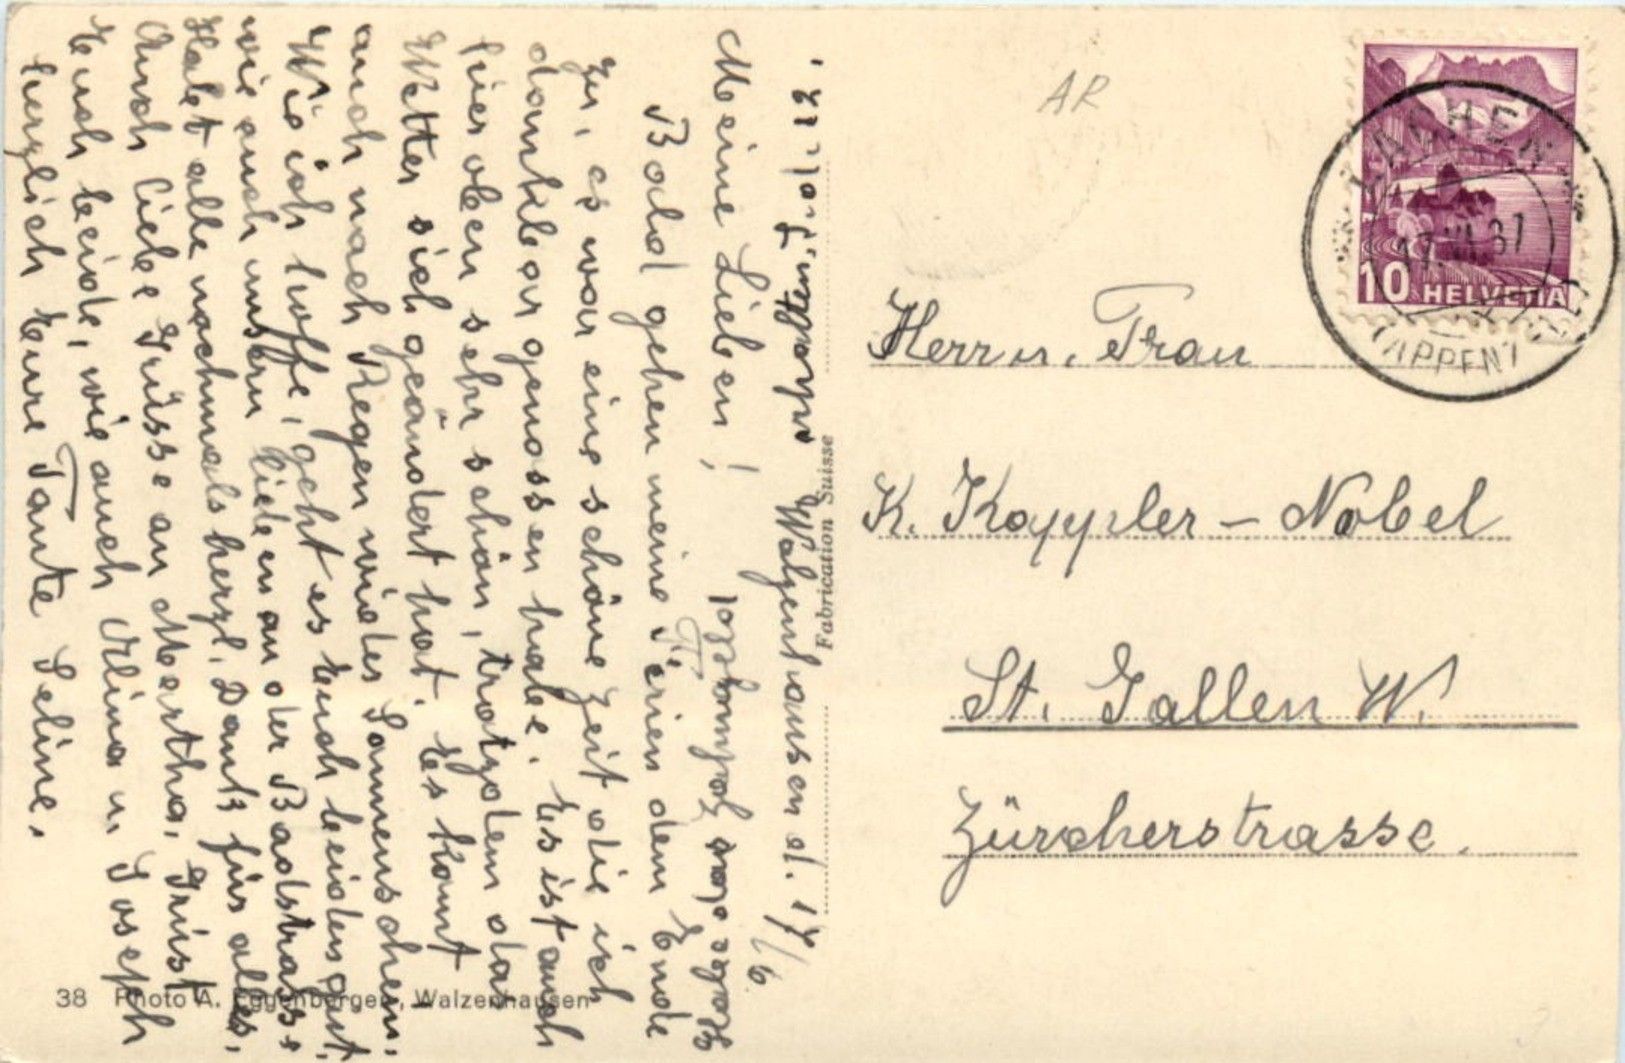 Walzenhausen d. 17/6
Meine Lieben!
Bald gehen meine Ferien dem Ende
zu, es war eine schöne Zeit die ich
dankbar genossen habe. Es ist auch
hier oben sehr schön, trotzdem das
Wetter sich geändert hat. Es komt
auch nach Regen wieder Sonnenschein.
Wie ich hoffe, geht es Euch beiden gut,
wie auch unsern lieben an der Badstrasse
Habt alle nochmals herzl. Dank für alles,
Auch liebe Grüsse an Martha. Grüst
Euch beide, wie auch Alina u. Joseph
herzlich Eure Tante Seline.
AR
Herr u. Frau
K. Kappler-Nobel
St. Gallen W.
Zürcherstrasse.
Fabrication Suisse
38 Photo A. Eggenberger, Walzenhausen
10 HELVETIA
LACHEN
17.VI.37
(APPENZELL)